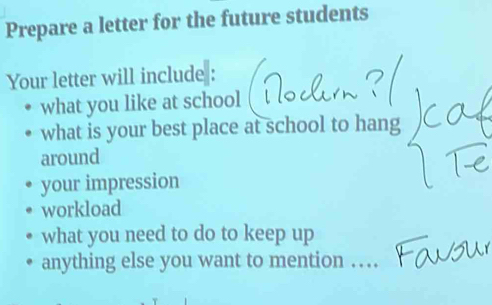 Prepare a letter for the future students
Your letter will include:
• what you like at school (Modern?(
• what is your best place at school to hang
around
• your impression
• workload
• what you need to do to keep up
• anything else you want to mention .... Favour